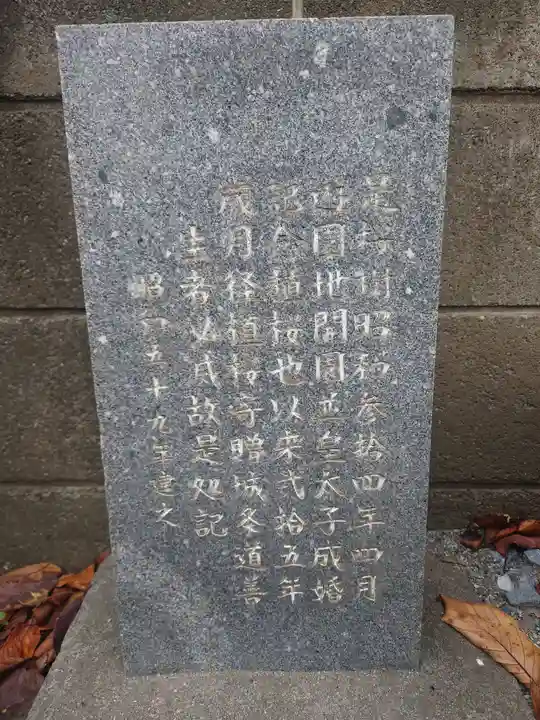 是桜樹昭和参拾四年四月
遊園地開園並皇太子成婚
記念植桜也以来弐拾五年
茂月径植桜寄贈城冬道善
生者必滅故是処記
昭和五十九年建之